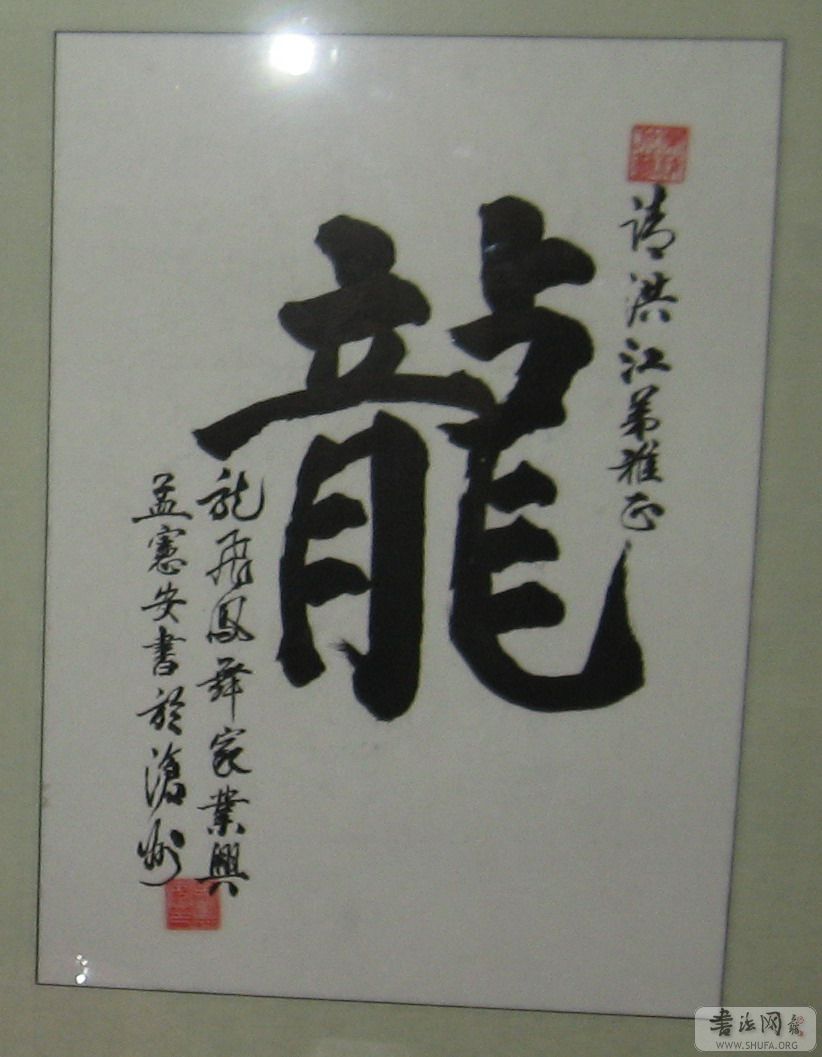 請洪江弟雅正
龍
龍飛鳳舞家業興
孟憲安書於滄州
書法网
WWW.SHUFA.ORG